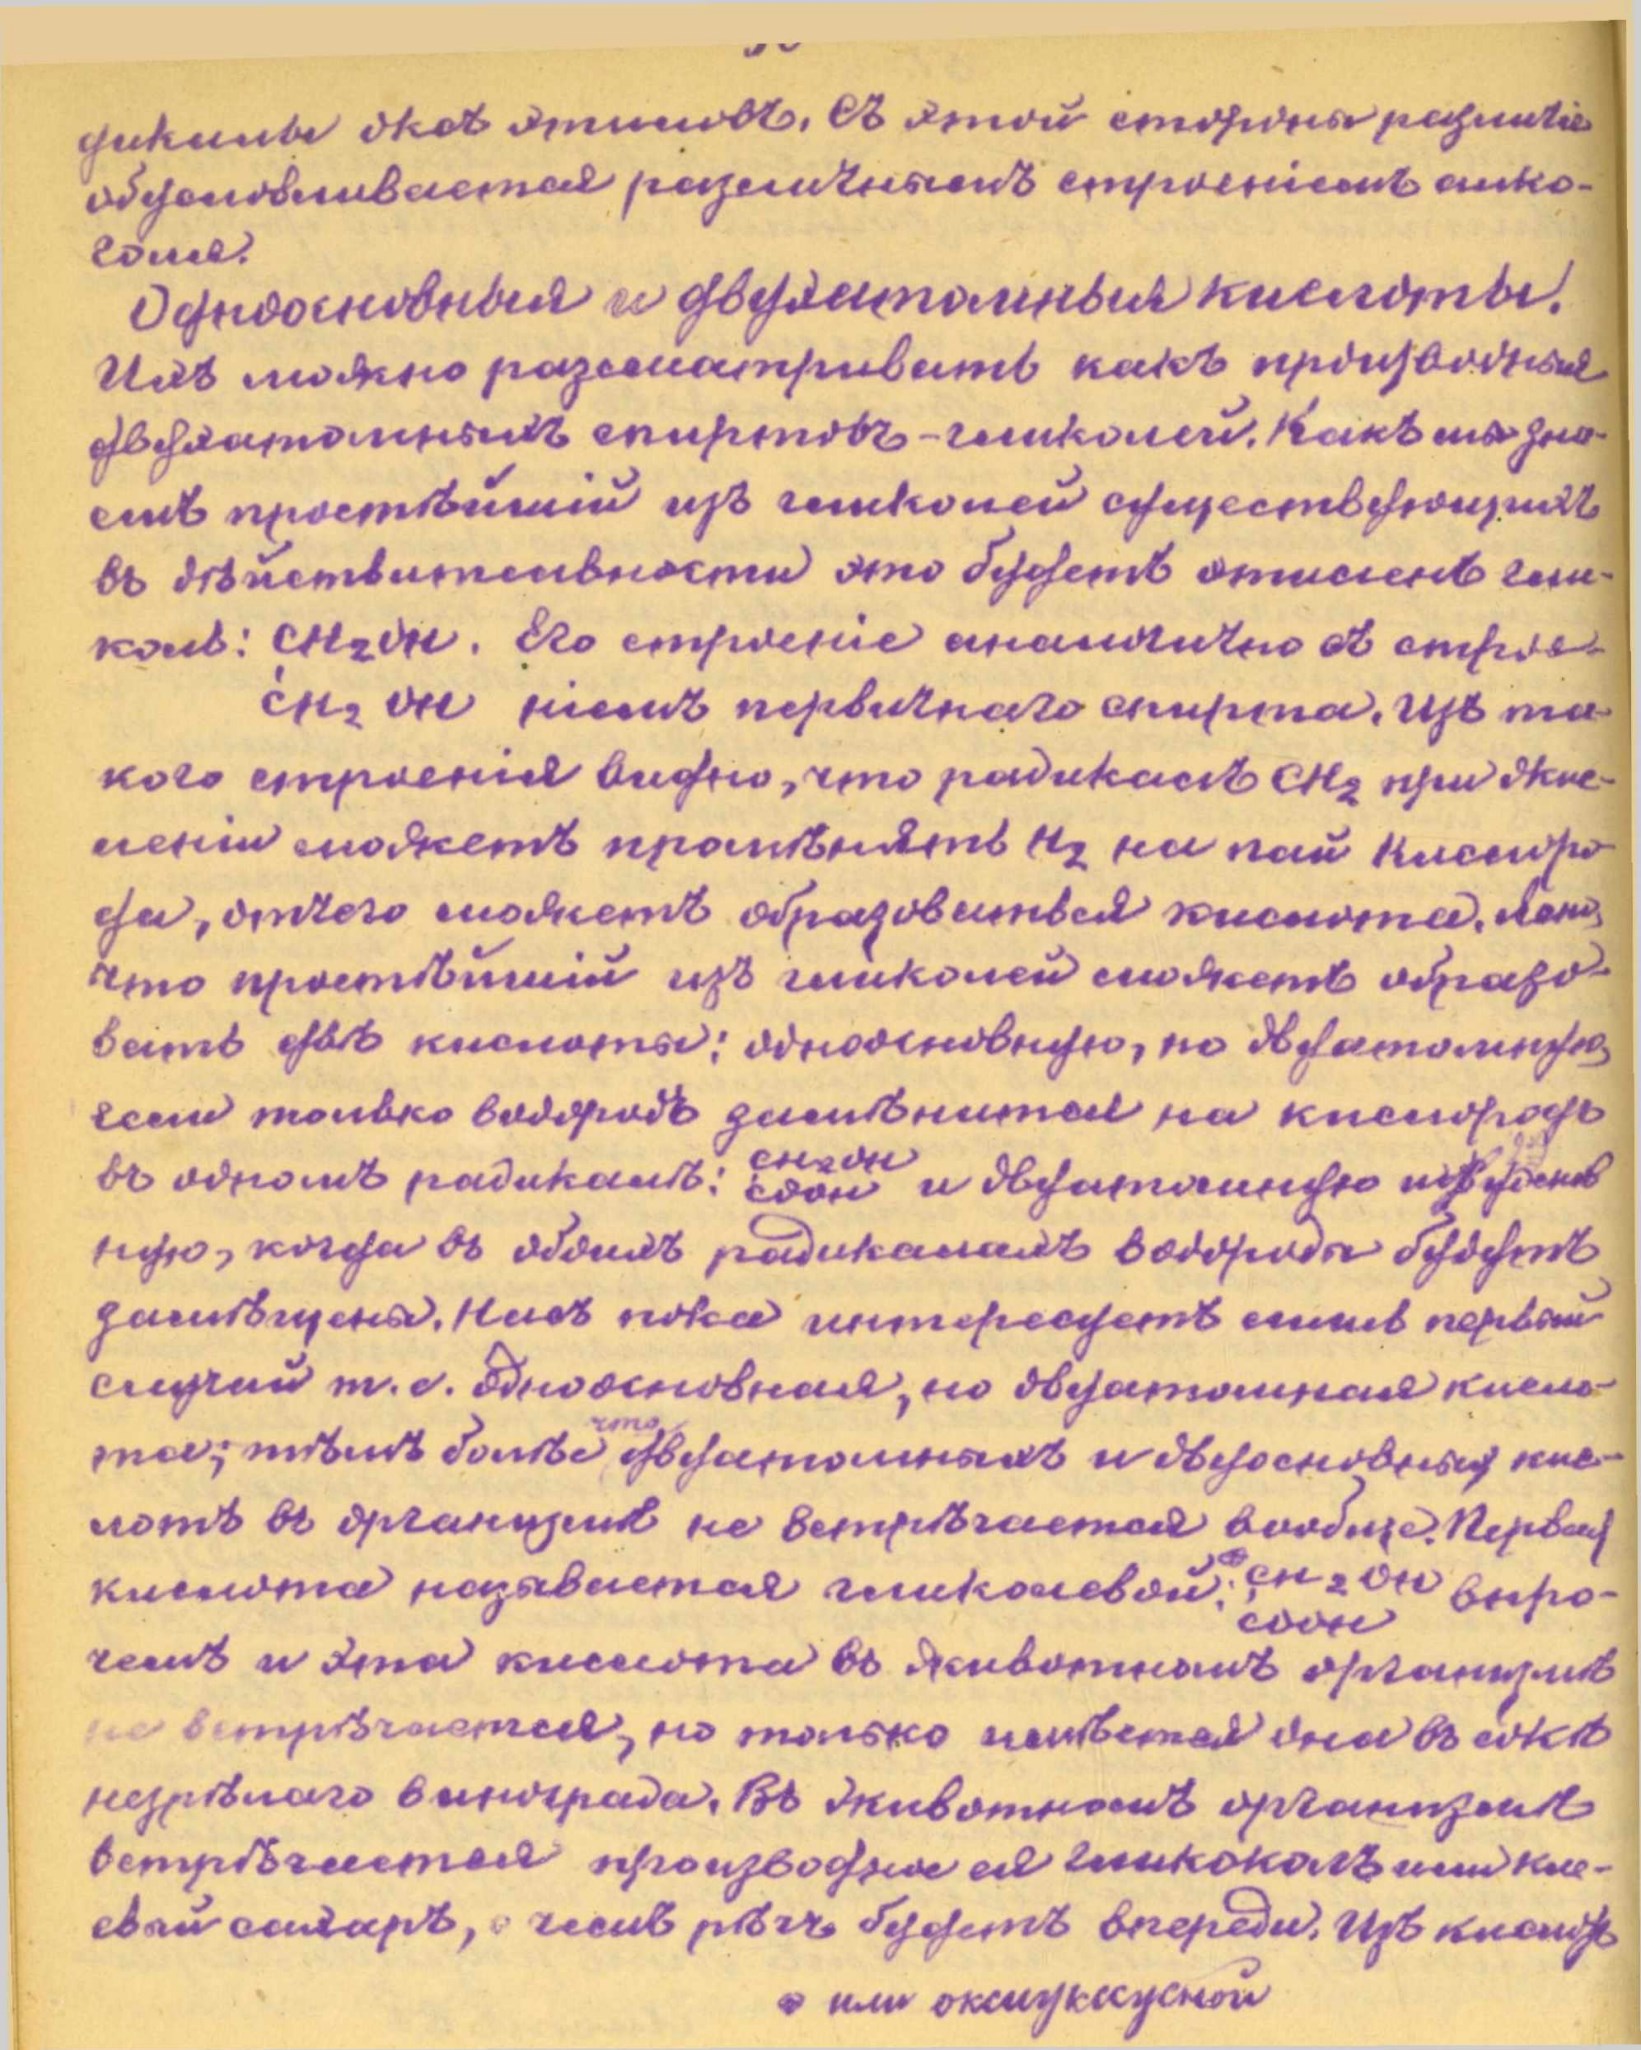 дикалы окся этиловъ. Съ этой стороны различіе
обусловливается различнымъ строеніемъ алко-
голя.
Одноосновныя и двухатомныя кислоты.
Ихъ можно разсматривать какъ производныя
двухатомныхъ спиртовъ - гликолей. Какъ мы зна-
емъ простѣйшій изъ гликолей существующихъ
въ дѣйствительности это будетъ этиленъ гли-
коль: CH2OH. Его строеніе аналогично съ строе-
CH2OH ніемъ первичнаго спирта. Изъ та-
кого строенія видно, что радикалъ CH2 при окис-
леніи можетъ промѣнять H2 на пай кислоро-
да, отчего можетъ образоваться кислота. Ясно,
что простѣйшій изъ гликолей можетъ образо-
вать двѣ кислоты: одноосновную, но двуатомную,
если только водородъ замѣнится на кислородъ
въ одномъ радикалѣ: CH2OH
COOH и двуатомную и двуоснов
ную, когда въ обоихъ радикалахъ водороды будутъ
замѣщены. Насъ пока интересуетъ лишь первый
случай т. е. одноосновная, но двуатомная кисло-
та; тѣмъ болѣе что двуатомныхъ и двуосновныхъ кис-
лотъ въ организмѣ не встрѣчается вообще. Первая
кислота называется гликолевой: CH2OH впро-
COOH
чемъ и эта кислота въ животномъ организмѣ
не встрѣчается, но только имѣется она въ сокѣ
незрѣлаго винограда. Въ животномъ организмѣ
встрѣчается производное ея гликоколъ или кле-
евый сахаръ, о чемъ рѣчь будетъ впереди. Изъ кислотъ
или оксиуксусной